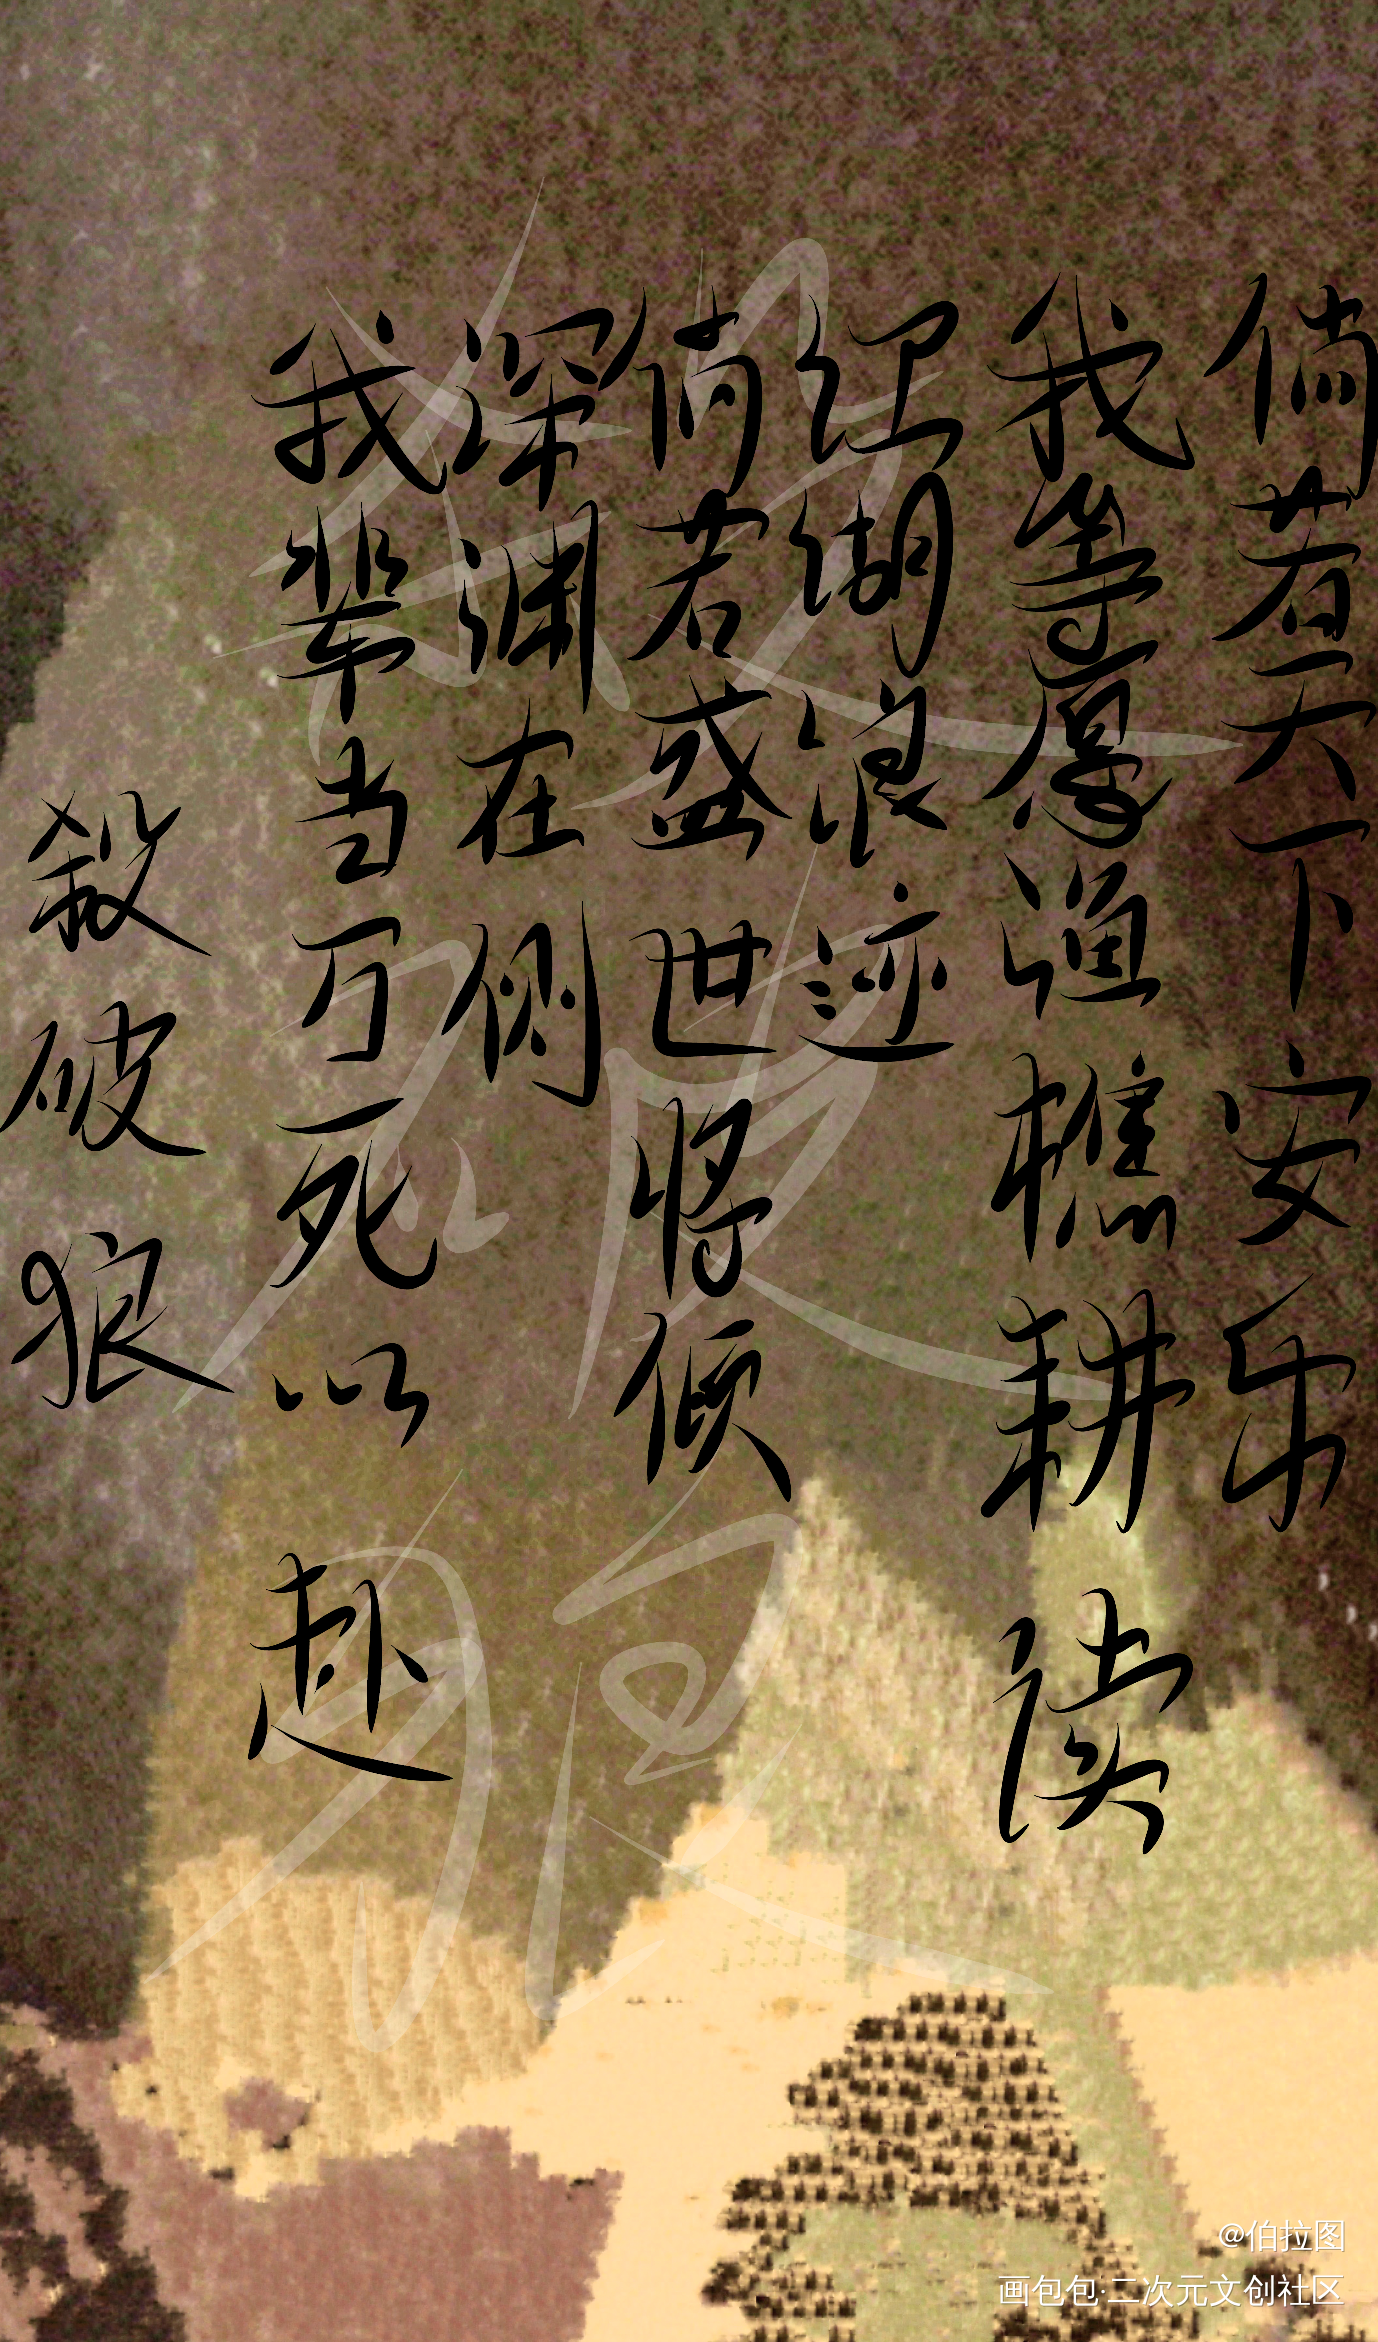 倘若天下安乐
我等愿渔樵耕读
江湖浪迹
倘若盛世将倾
深渊在侧
我辈当万死以赴
殺破狼
殺破狼
@伯拉图
画包包·二次元文创社区